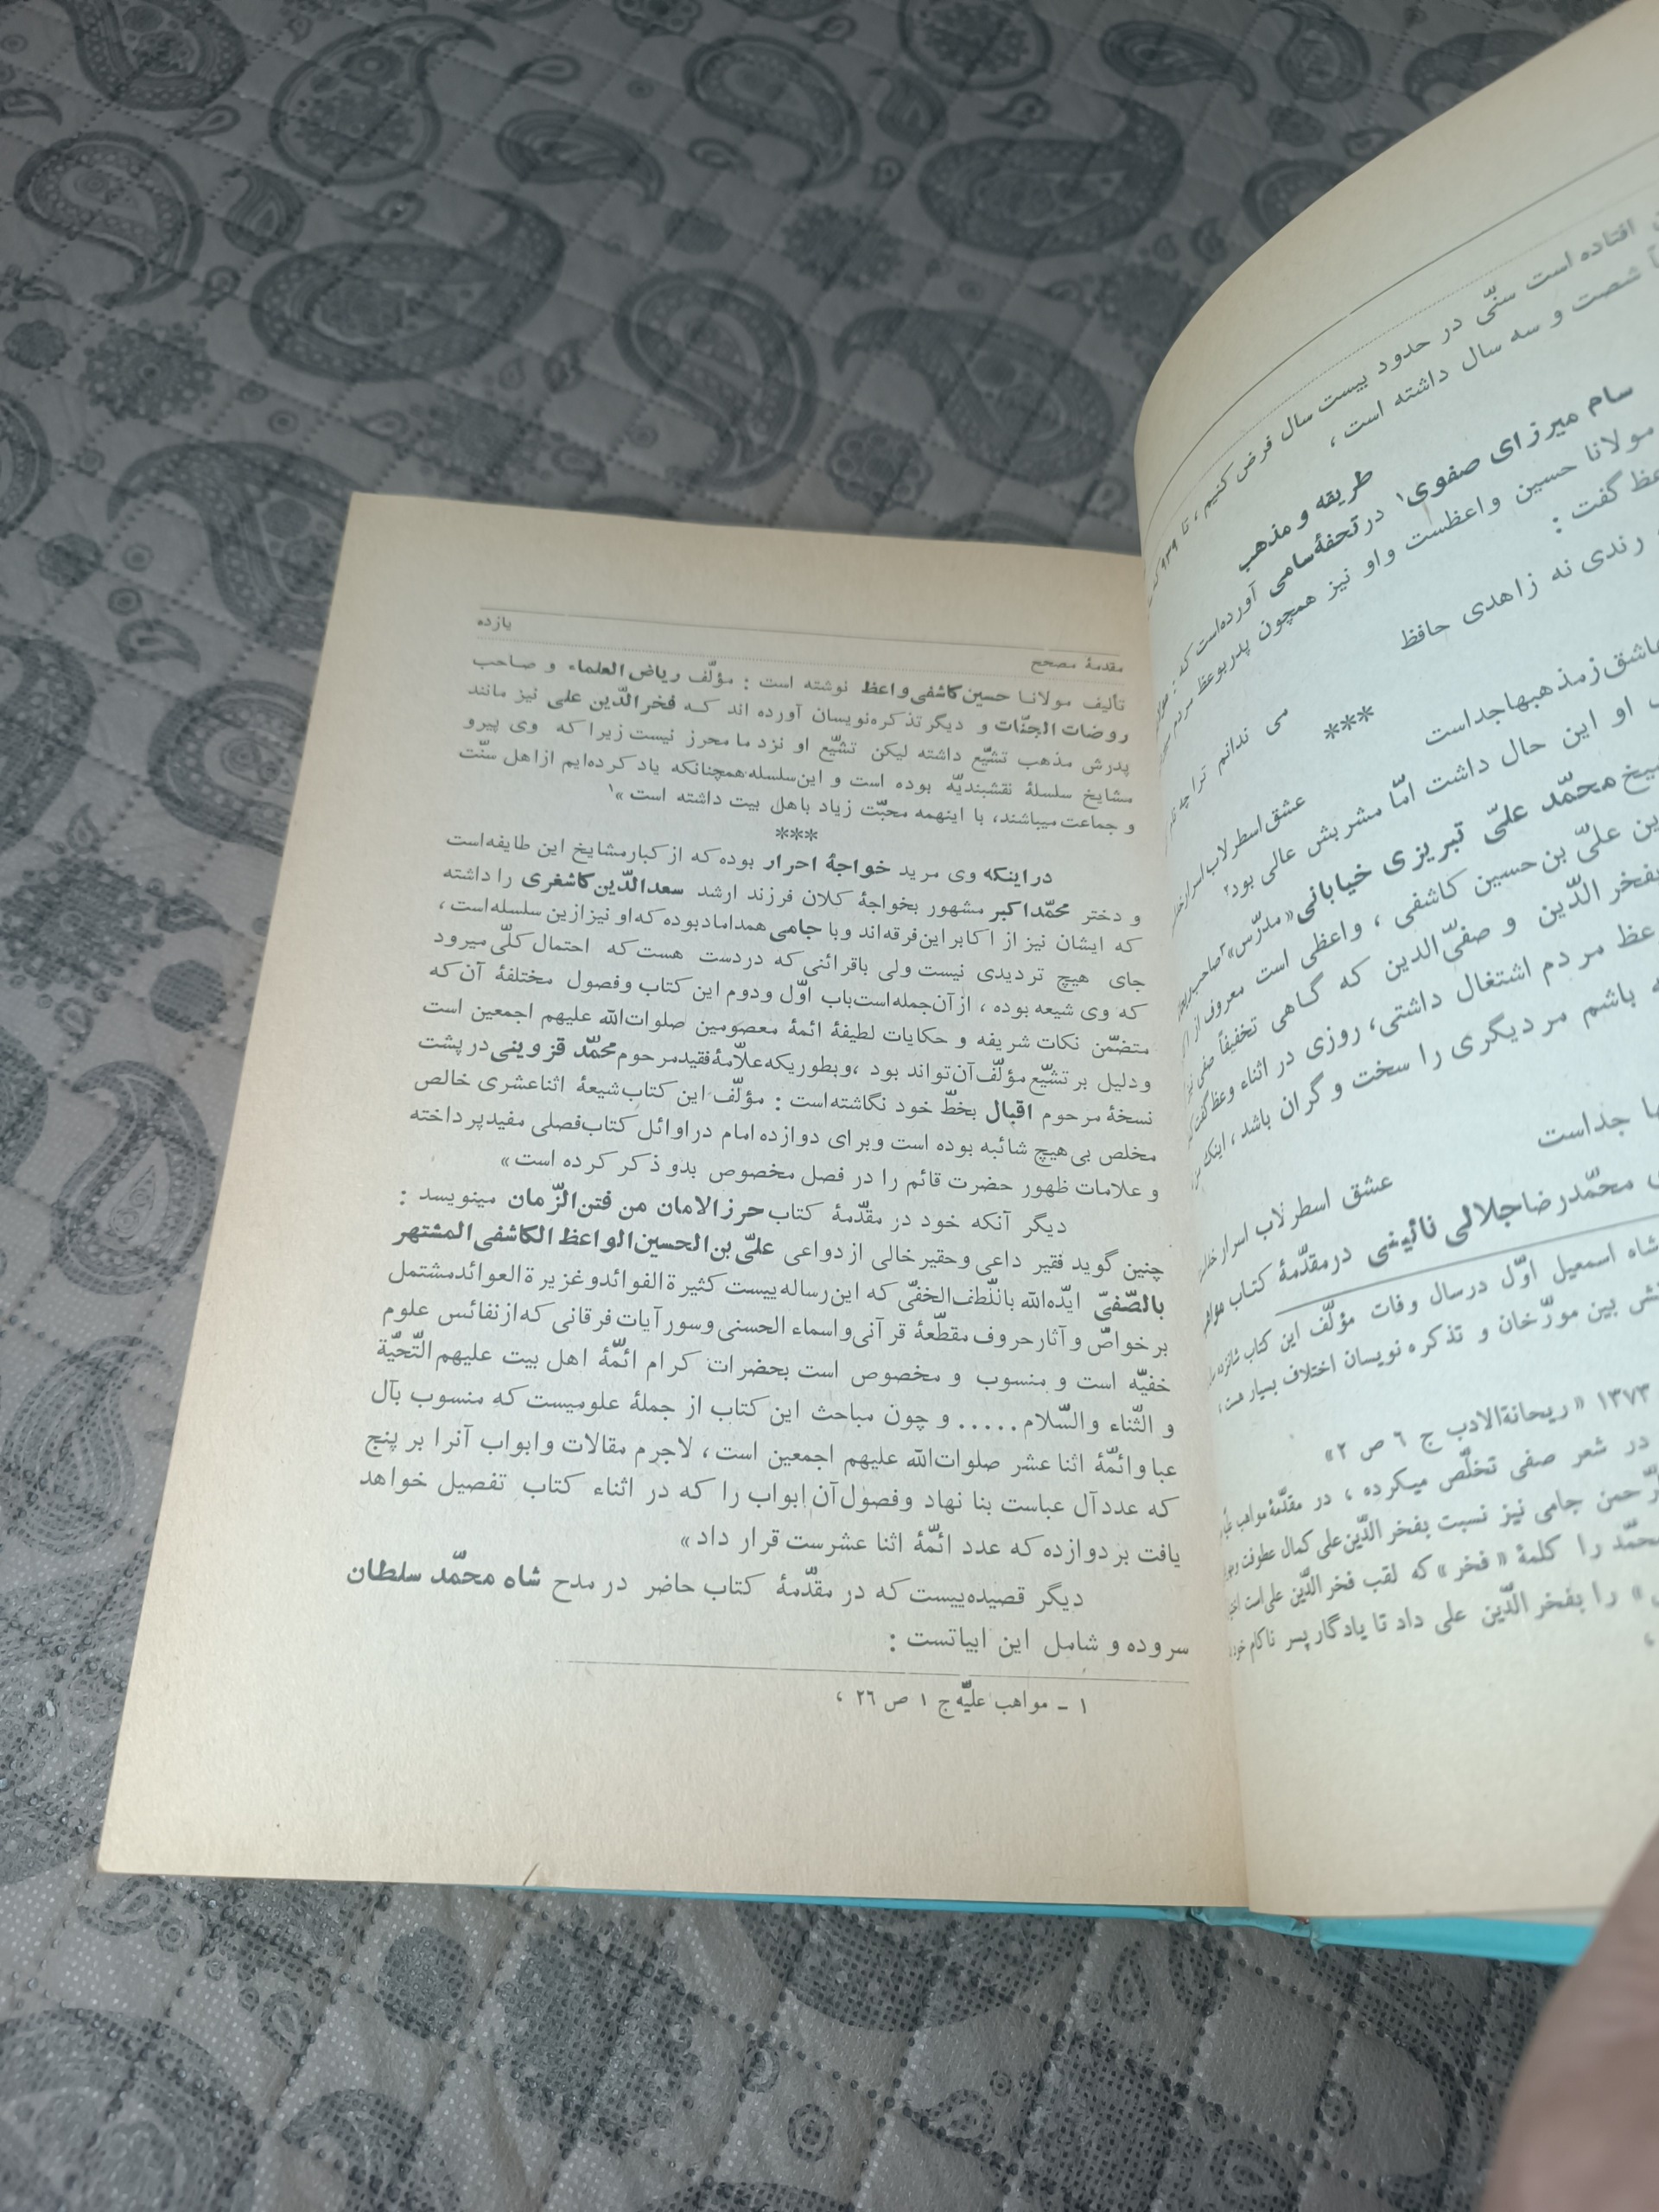 افتاده است سنّی در حدود بیست سال فرض کنیم ، تا ۹۳۹
شصت و سه سال داشته است ،
طریقه و مذهب
سام میرزای صفوی۱ در تحفهٔ سامی آورده‌است که :
مولانا حسین واعظست واو نیز همچون پدر بوعظ
گفت :
رندی نه زاهدی حافظ
می ندانم ترا چه
***
عاشق زمذهبها جداست
عشق اسطرلاب اسرار
او این حال داشت امّا مشربش عالی بود۲
شیخ محمّد علیّ تبریزی خیابانی «مدرّس»۳ صاحب
علیّ بن حسین کاشفی ، واعظی است معروف از
بفخر الدّین و صفیّ‌الدین که گاهی تخفیفاً صفی نیز
وعظ مردم اشتغال داشتی، روزی در اثناء وعظ گفت
باشم مر دیگری را سخت و گران باشد ، اینک
جداست
عشق اسطرلاب اسرار
محمّدرضا جلالی نائینی درمقدّمهٔ کتاب
شاه اسمعیل اوّل درسال وفات مؤلّف این کتاب شانزده
بین مورّخان و تذکره نویسان اختلاف بسیار هست ،
۱۳۷۳ « ریحانةالادب ج ٦ ص ۲»
در شعر صفی تخلّص میکرده ، در مقدّمهٔ مواهب
جامی نیز نسبت بفخر الدّین علی کمال عطوفت
محمّد را کلمهٔ « فخر » که لقب فخر الدّین علی است
» را بفخر الدّین علی داد تا یادگار پسر ناکام خود
مقدمهٔ مصحح یازده
تألیف مولانا حسین کاشفی واعظ نوشته است : مؤلّف ریاض العلماء و صاحب
روضات الجنّات و دیگر تذکره‌نویسان آورده اند که فخر الدّین علی نیز مانند
پدرش مذهب تشیّع داشته لیکن تشیّع او نزد ما محرز نیست زیرا که وی پیرو
مشایخ سلسلهٔ نقشبندیّه بوده است و این سلسله همچنانکه یاد کرده‌ایم از اهل سنّت
و جماعت میباشند، با اینهمه محبّت زیاد باهل بیت داشته است »۱
***
در اینکه وی مرید خواجهٔ احرار بوده که از کبار مشایخ این طایفه‌است
و دختر محمّد اکبر مشهور بخواجهٔ کلان فرزند ارشد سعد الدّین کاشغری را داشته
که ایشان نیز از اکابر این فرقه‌اند و با جامی همداماد بوده که او نیز ازین سلسله‌است ،
جای هیچ تردیدی نیست ولی باقرائنی که دردست هست که احتمال کلّی میرود
که وی شیعه بوده ، از آن جمله‌است باب اوّل و دوم این کتاب و فصول مختلفهٔ آن که
متضمّن نکات شریفه و حکایات لطیفهٔ ائمهٔ معصومین صلوات‌الله علیهم اجمعین است
و دلیل بر تشیّع مؤلّف آن تواند بود ، و بطوریکه علاّمهٔ فقید مرحوم محمّد قزوینی در پشت
نسخهٔ مرحوم اقبال بخطّ خود نگاشته‌است : مؤلّف این کتاب شیعهٔ اثناعشری خالص
مخلص بی هیچ شائبه بوده است و برای دوازده امام در اوائل کتاب فصلی مفید پرداخته
و علامات ظهور حضرت قائم را در فصل مخصوص بدو ذکر کرده است»
دیگر آنکه خود در مقدّمهٔ کتاب حرز الامان من فتن الزّمان مینویسد :
چنین گوید فقیر داعی و حقیر خالی از دواعی علیّ بن الحسین الواعظ الکاشفی المشتهر
بالصّفیّ ایّده‌الله باللّطف الخفیّ که این رساله ییست کثیرة الفوائد و غزیرة العوائد مشتمل
بر خواصّ و آثار حروف مقطّعهٔ قرآنی و اسماء الحسنی و سور آیات فرقانی که از نفائس علوم
خفیّه است و منسوب و مخصوص است بحضرات کرام ائمّهٔ اهل بیت علیهم التّحیّة
و الثّناء والسّلام..... و چون مباحث این کتاب از جملهٔ علومیست که منسوب بآل
عبا و ائمّهٔ اثنا عشر صلوات‌الله علیهم اجمعین است ، لاجرم مقالات و ابواب آنرا بر پنج
که عدد آل عباست بنا نهاد و فصول آن ابواب را که در اثناء کتاب تفصیل خواهد
یافت بر دوازده که عدد ائمّهٔ اثنا عشرست قرار داد »
دیگر قصیده‌ییست که در مقدّمهٔ کتاب حاضر در مدح شاه محمّد سلطان
سروده و شامل این ابیاتست :
۱ - مواهب علیّه ج ۱ ص ۲٦ ،